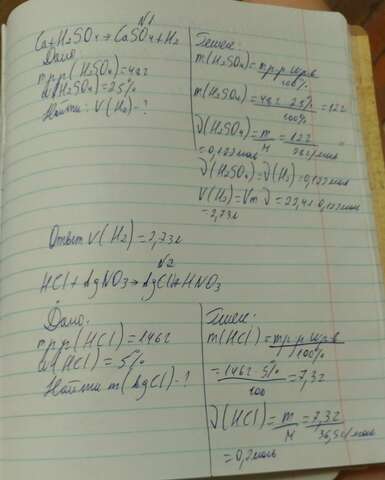 №1
Ca+H2SO4→CaSO4+H2
Дано:
mр.р(H2SO4)=48г
ω(H2SO4)=25%
Найти: V(H2)-?
Решен:
m(H2SO4)=mр.р·ωр.в/100%
m(H2SO4)=48г·25%/100%=12г
ν(H2SO4)=m/M=12г/98г/моль
=0,122моль
ν(H2SO4)=ν(H2)=0,122моль
V(H2)=Vm·ν=22,4·0,122моль
=2,73л
Ответ V(H2)=2,73л
№2
HCl+AgNO3→AgCl+HNO3
Дано:
mр.р(HCl)=146г
ω(HCl)=5%
Найти m(AgCl)-?
Решен:
m(HCl)=mр.р·ωр.в/100%
=146г·5%/100=7,3г
ν(HCl)=m/M=7,3г/36,5г/моль
=0,2моль